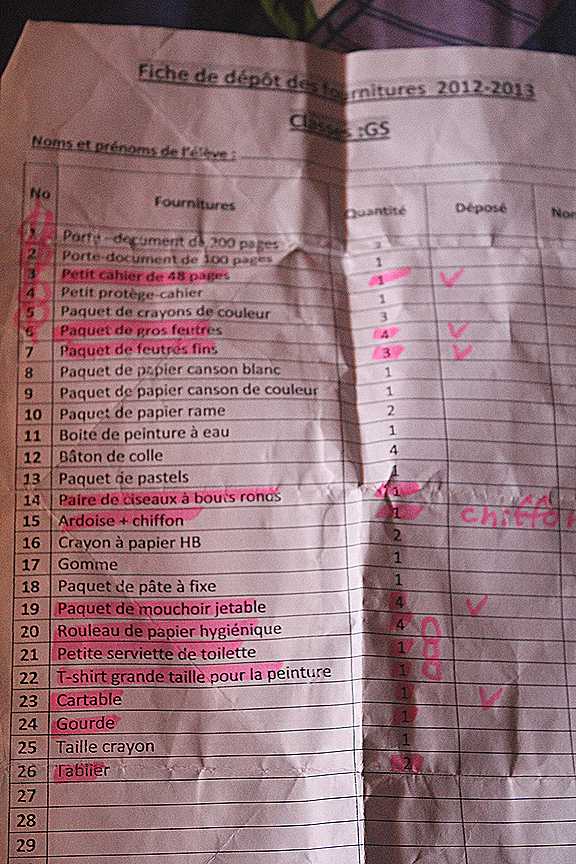 Fiche de dépôt des fournitures 2012-2013
Classes :GS
Noms et prénoms de l'élève :
No Fournitures Quantité Déposé Nom
1 Porte-document de 200 pages
2 Porte-document de 100 pages 1
3 Petit cahier de 48 pages 1 ✓
4 Petit protège-cahier 1
5 Paquet de crayons de couleur 3
6 Paquet de gros feutres 4 ✓
7 Paquet de feutres fins 3 ✓
8 Paquet de papier canson blanc 1
9 Paquet de papier canson de couleur 1
10 Paquet de papier rame 2
11 Boite de peinture à eau 1
12 Bâton de colle 4
13 Paquet de pastels 1
14 Paire de ciseaux à bouts ronds 1
15 Ardoise + chiffon 1 chiffon
16 Crayon à papier HB 2
17 Gomme 1
18 Paquet de pâte à fixe 1
19 Paquet de mouchoir jetable 4 ✓
20 Rouleau de papier hygiénique 4
21 Petite serviette de toilette 1
22 T-shirt grande taille pour la peinture 1
23 Cartable 1 ✓
24 Gourde 1
25 Taille crayon 1
26 Tablier 2
27
28
29